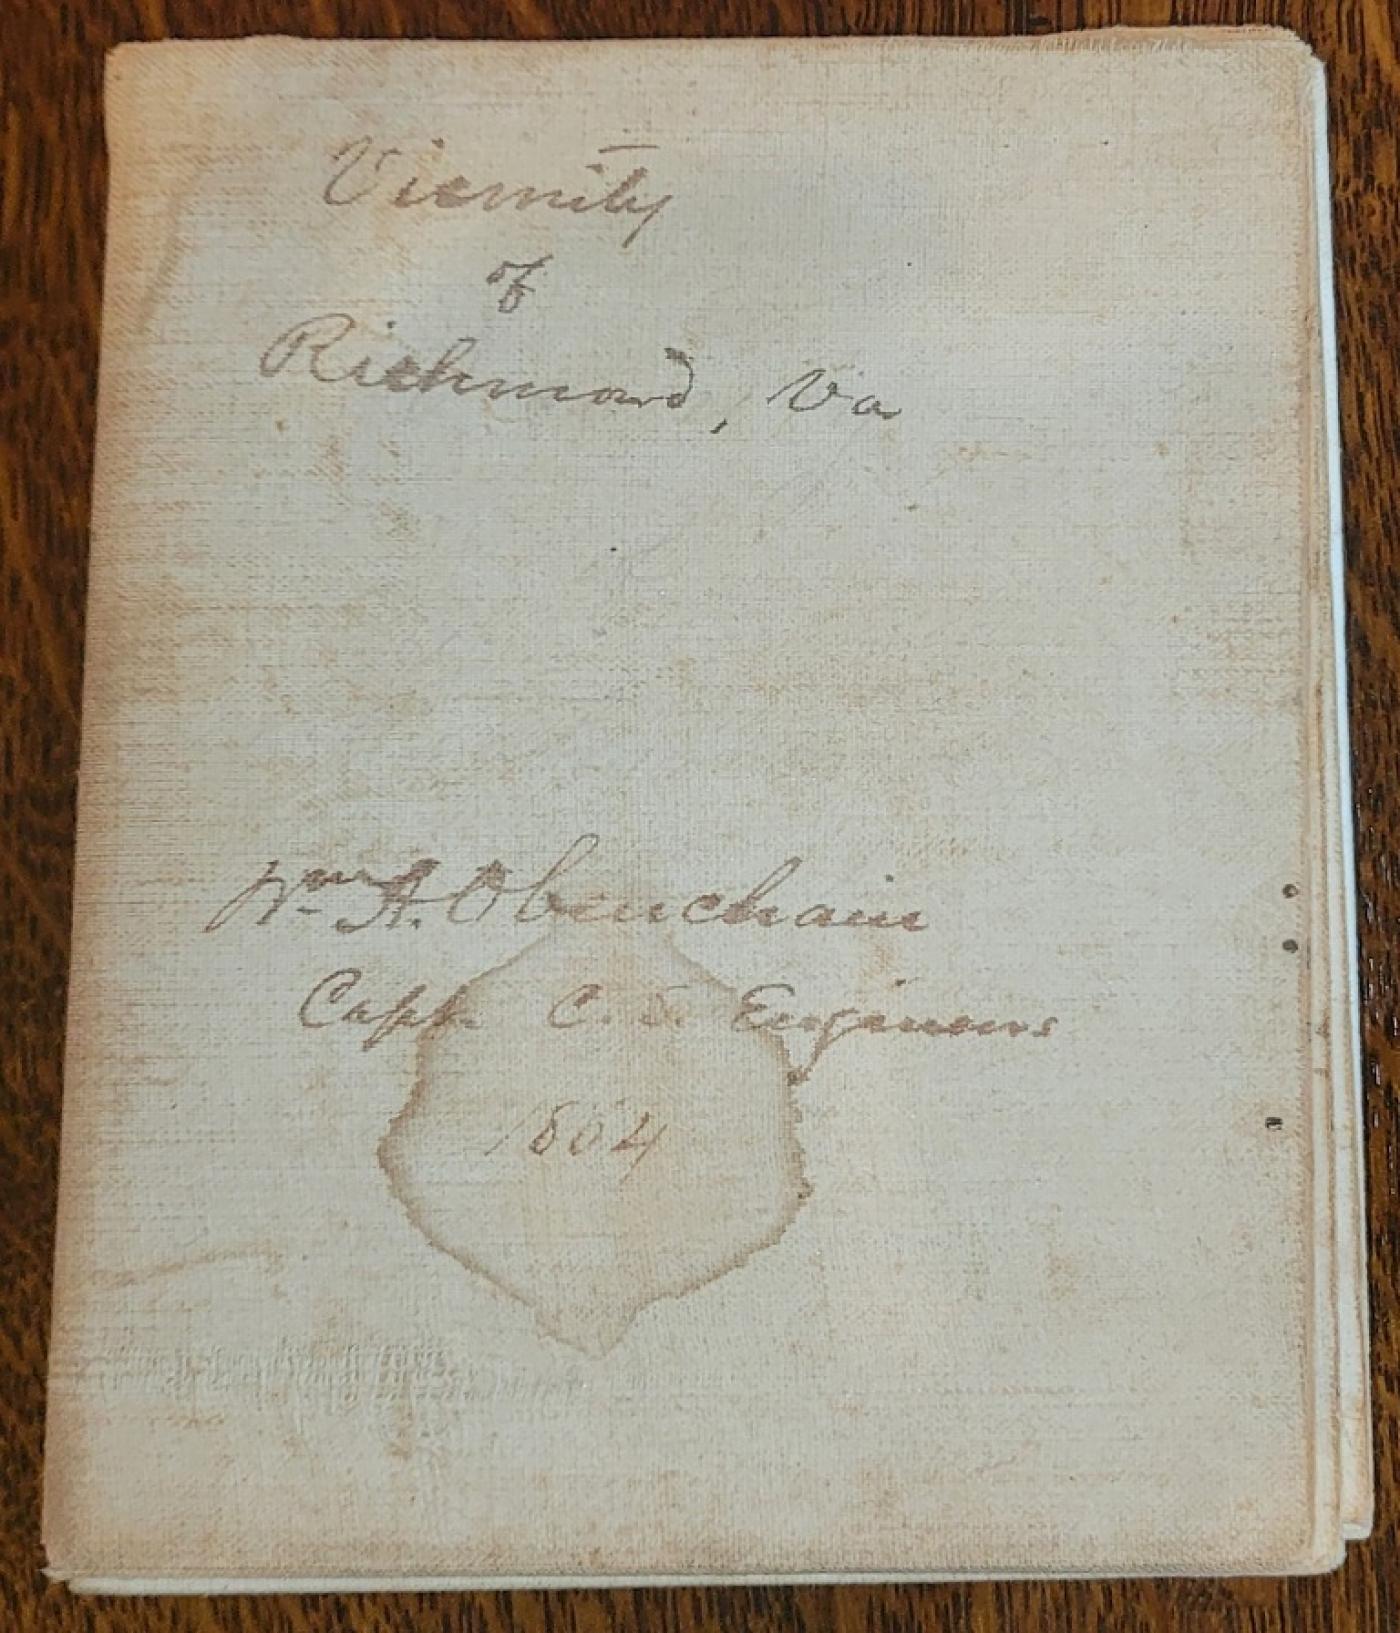 Vicinity
of
Richmond, Va
Wm A. Obenchain
Capt. C. S. Engineers
1864